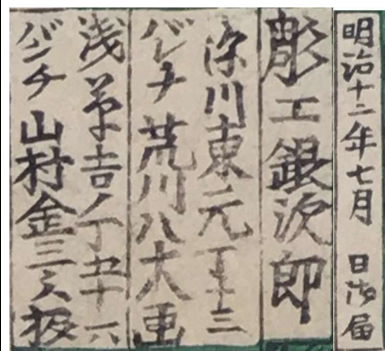 明治十二年七月 日御届
彫工銀次郎
深川東元丁十三
バンチ荒川八十画
浅草吉ノ丁五十六
バンチ山村金三郎板